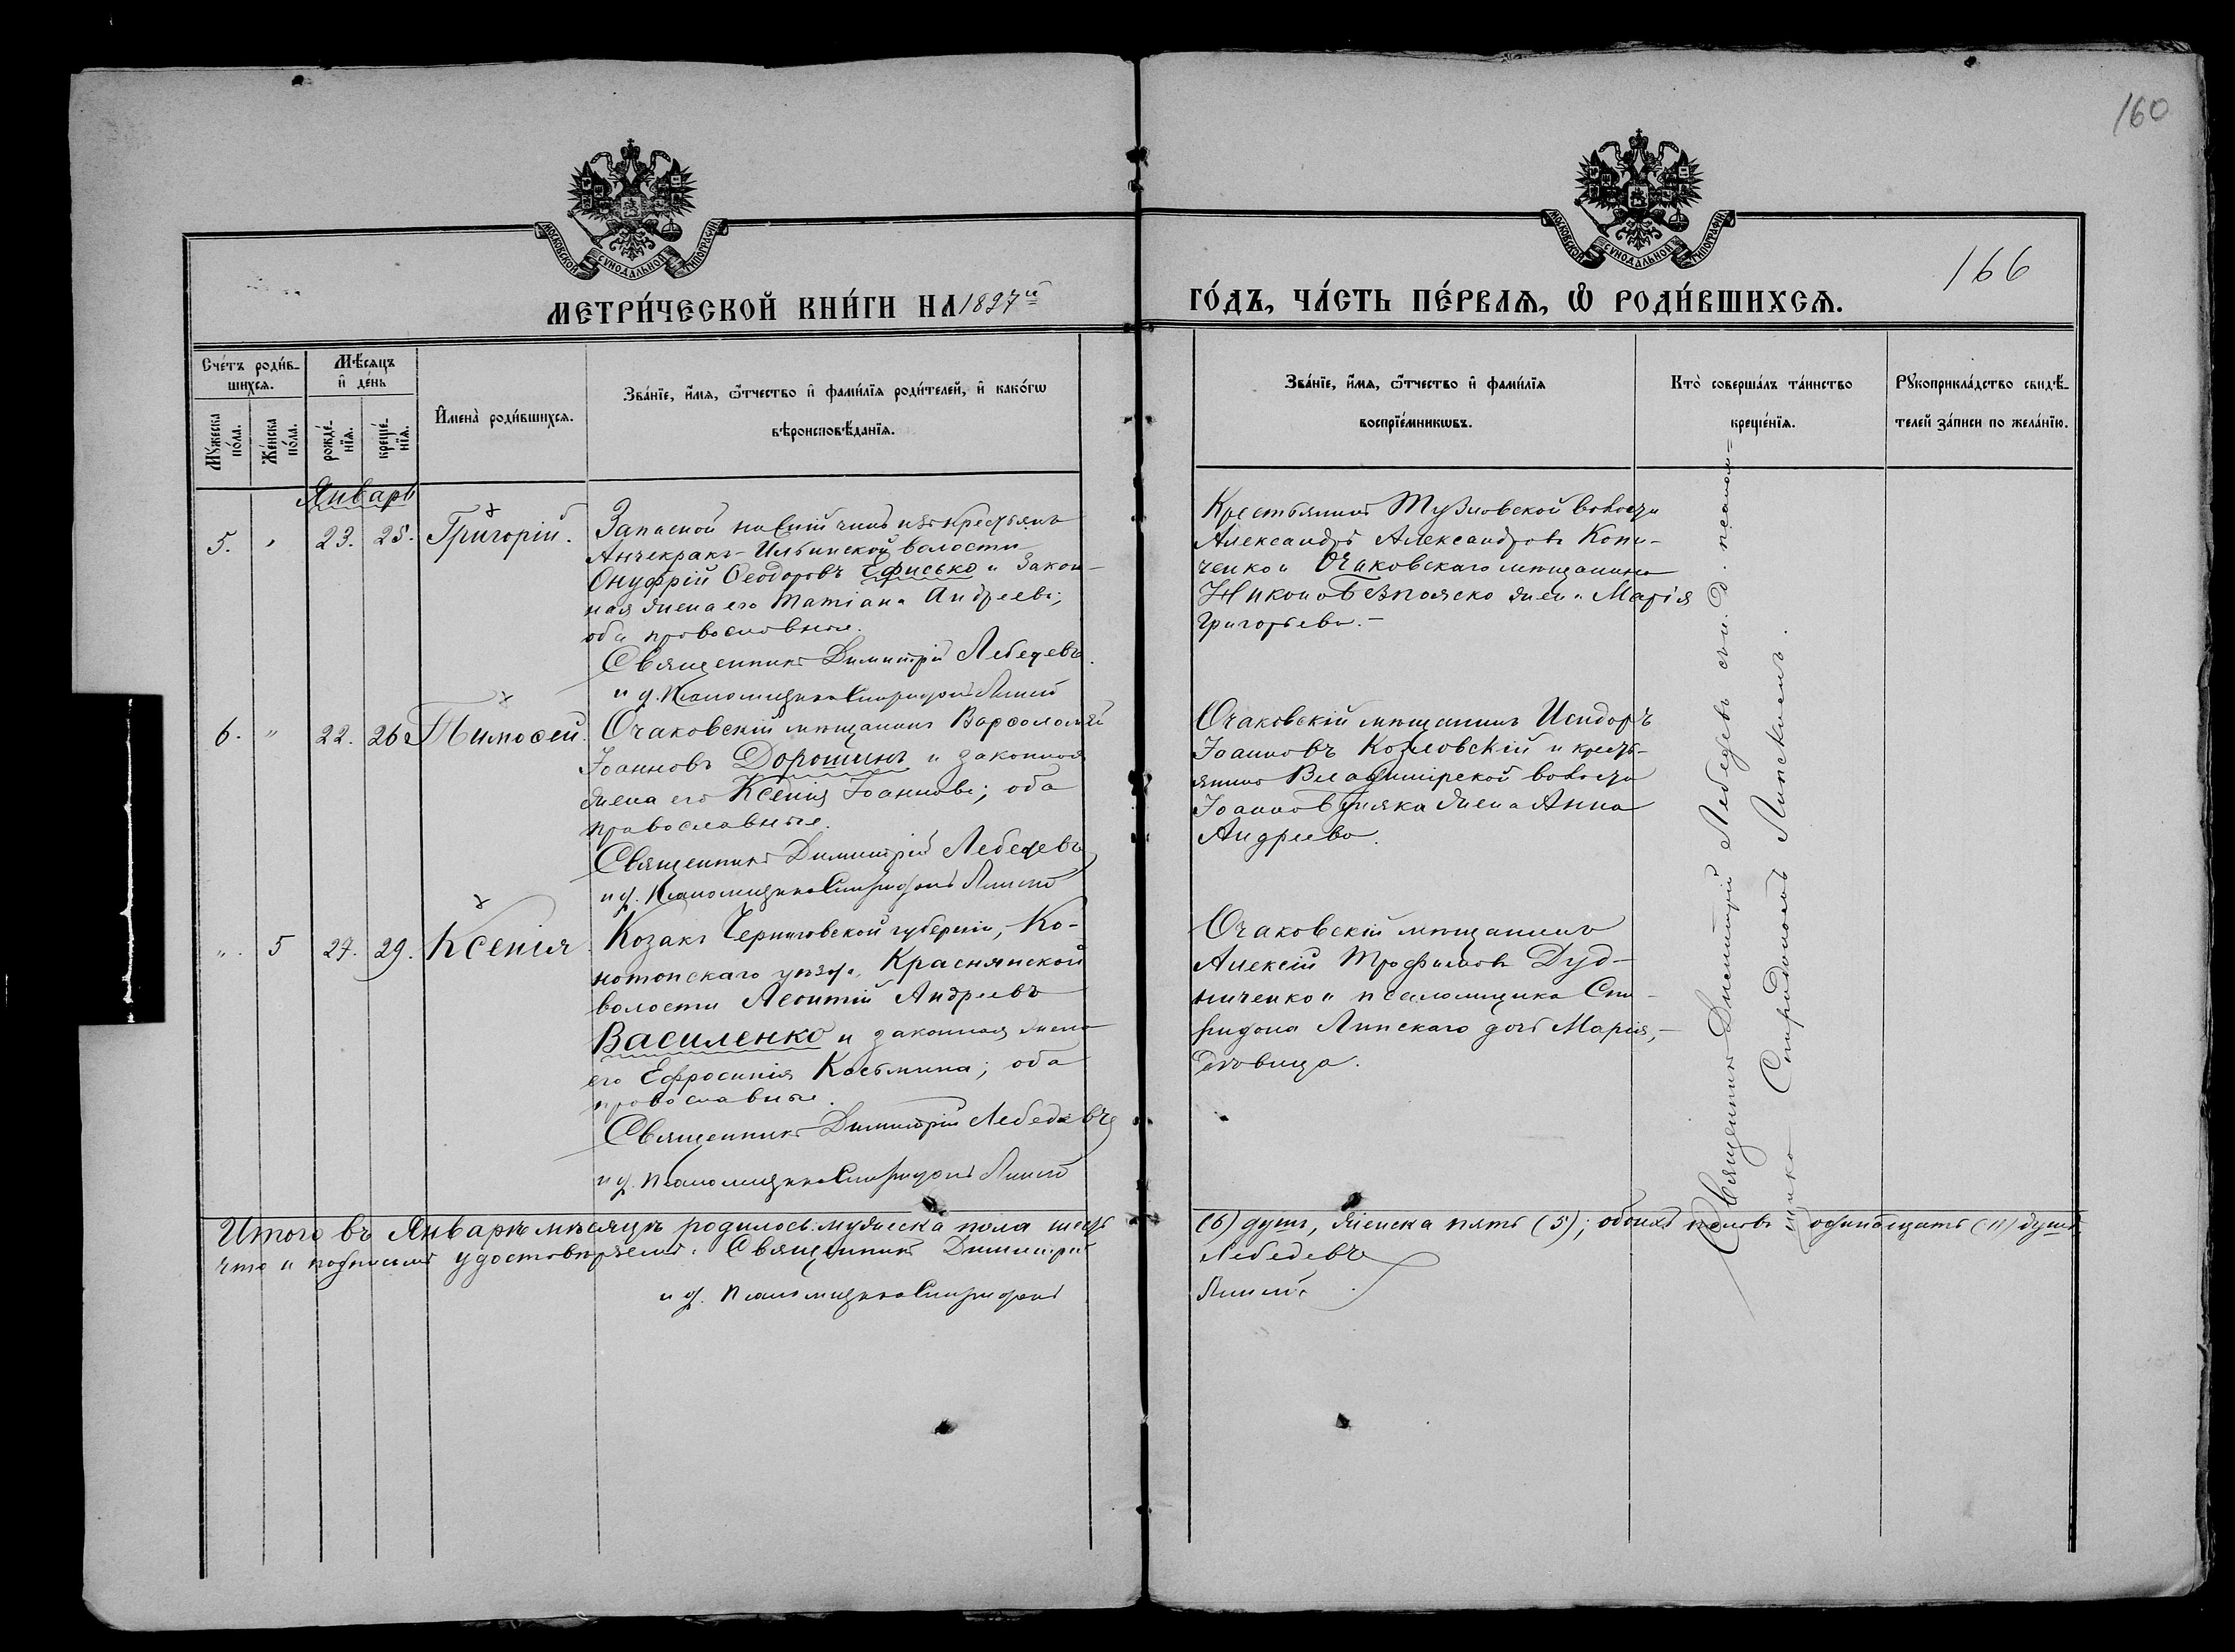 160
166
МОСКОВСКОЙ СѴНОДАЛЬНОЙ ТИПОГРАФІИ
МОСКОВСКОЙ СѴНОДАЛЬНОЙ ТИПОГРАФІИ
МЕТРИ́ЧЕСКОЙ КНИ́ГИ НА 1897й
ГО́ДЪ, ЧА́СТЬ ПЕ́РВАѦ, Ѡ РОДИ́ВШИХСѦ.
Сче́тъ роди́в-
шихсѧ.
Мѣ́сѧцъ
и҆ де́нь
Мꙋ́жеска по́ла.
Же́нска по́ла.
рожде́-
нїѧ.
креще́-
нїѧ.
И҆мена̀ роди́вшихсѧ.
Зва́нїе, и҆́мѧ, ѻ҆́тчество и҆ фами́лїѧ роди́телей, и҆ како́гѡ
вѣроисповѣ́данїѧ.
Зва́нїе, и҆́мѧ, ѻ҆́тчество и҆ фами́лїѧ
воспрїе́мникѡвъ.
Кто̀ соверша́лъ та́инство
креще́нїѧ.
Рꙋкоприкла́дство свидѣ́-
телей за́писи по жела́нїю.
Январь
5. " 23. 25. Григорій.
Запасной нисшій чинъ изъ крестьянъ
Анчекракъ-Ильинской волости
Онуфрій Ѳеодоровъ Чфисько и закон-
ная жена его Татіана Андреева;
оба православные.
Священникъ Димитрій Лебедевъ
и д. псаломщика Спиридонъ Липскій
Крестьянинъ Тузловской волости
Александръ Александровъ Копи-
ченко и Очаковскаго мѣщанина
Никона Безпояско жена Марія
Григорьева.-
6. " 22. 26. Тимоѳей.
Очаковскій мѣщанинъ Варѳоломей
Іоанновъ Дорошинъ и законная
жена его Ксенія Іоаннова; оба
православные.
Священникъ Димитрій Лебедевъ
и д. псаломщика Спиридонъ Липскій
Очаковскій мѣщанинъ Исидоръ
Іоанновъ Козловскій и кресть-
янина Владимірской волости
Іоанна жена Анна
Андреева.
". 5 27. 29. Ксенія.
Козакъ Черниговской губерніи, Ко-
нотопскаго уѣзда, Краснянской
волости Леонтій Андреевъ
Василенко и законная жена
его Ефросинія Косьмина; оба
православные.
Священникъ Димитрій Лебедевъ
и д. псаломщика Спиридонъ Липскій
Очаковскій мѣщанинъ
Алексій Трофимовъ Дуд-
ниченко и псаломщика Спи-
ридона Липскаго дочь Марія,-
дѣвица.
Священникъ Димитрій Лебедевъ съ и. д. псалом-
щика Спиридономъ Липскимъ.
Итого въ Январѣ мѣсяцѣ родилось: мужеска пола шесть (6) душъ, женска пять (5); обоихъ половъ одинадцать (11) душъ,
что и подписомъ удостовѣряемъ: Священникъ Димитрій Лебедевъ
и д. псаломщика Спиридонъ Липскій.